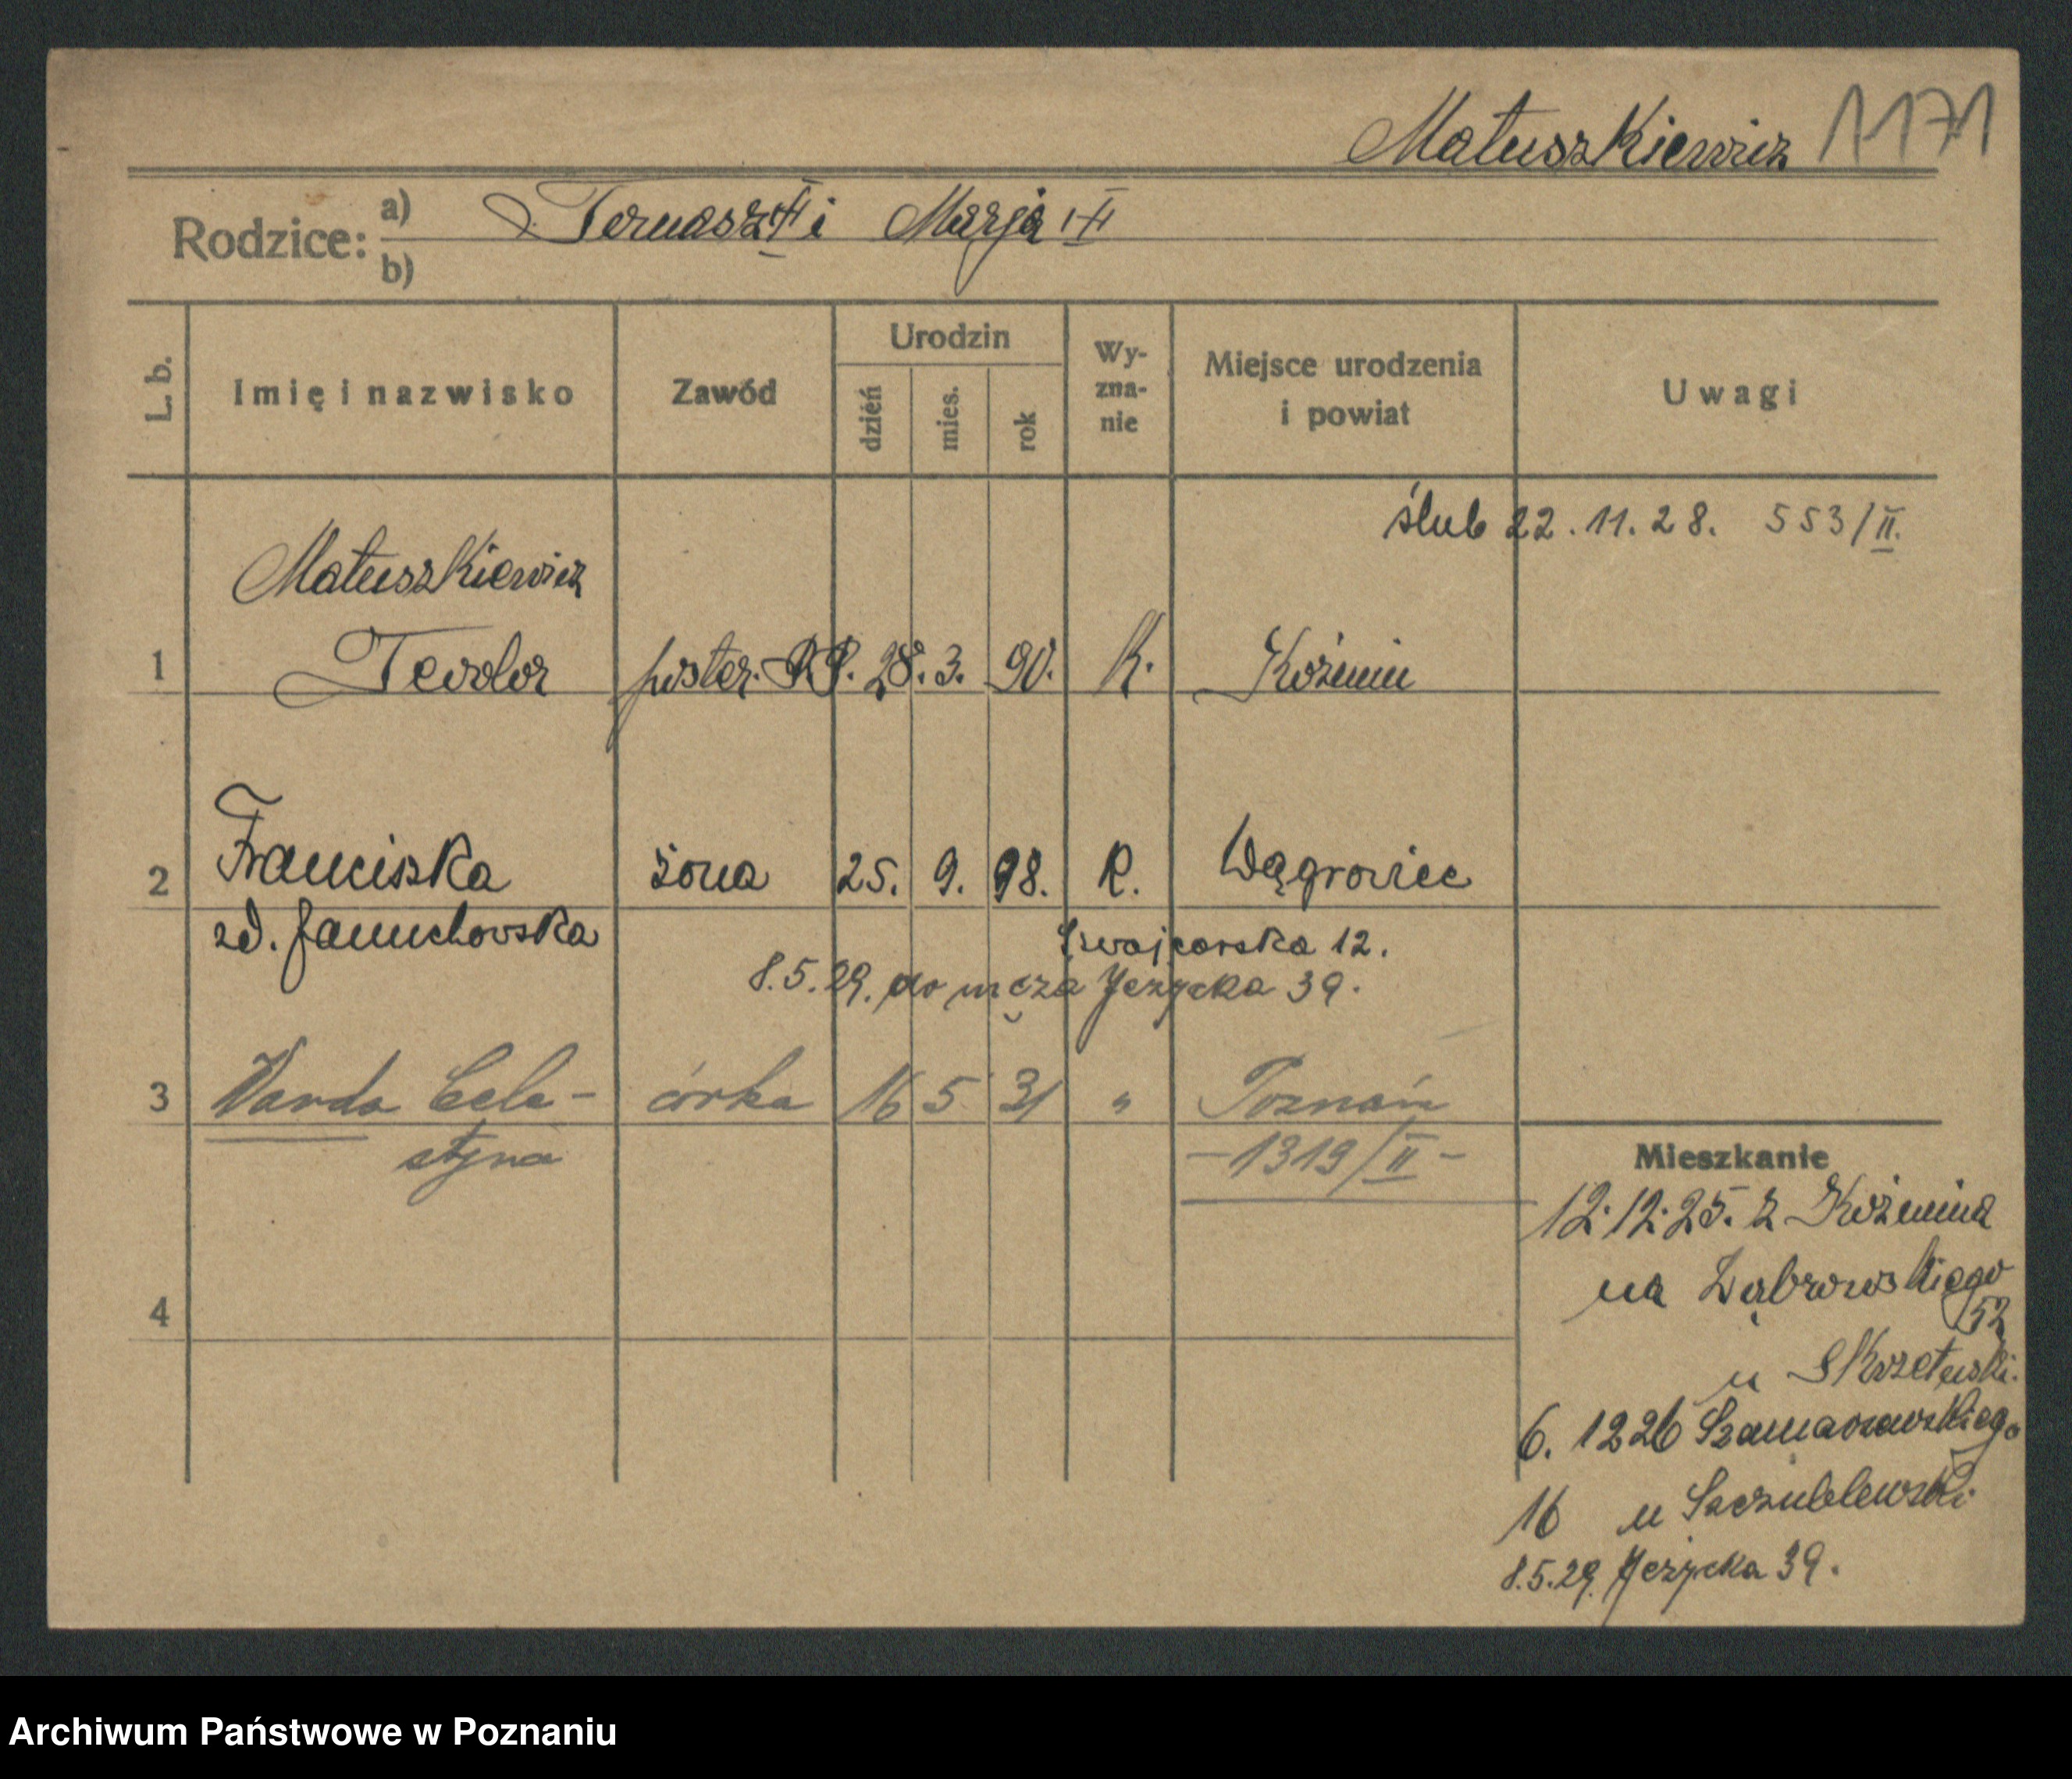 Matuszkiewicz 1171
Rodzice: a) Tomasz i Marja
b)
L. b. Imię i nazwisko Zawód Urodzin dzień mies. rok Wyznanie Miejsce urodzenia i powiat Uwagi
ślub 22.11.28. 553/II.
Matuszkiewicz
1 Teodor poster. P.P. 28. 3. 90. K. Koźmin
2 Franciszka żona 25. 9. 98. K. Wągrowiec
zd. Januchowska Szwajcarska 12.
8.5.29. do męża Jeżycka 39.
3 Wanda Cele- córka 16 5 31 " Poznań
styna -1319/II-
Mieszkanie
12.12.25. z Koźmina
na Dąbrowskiego
52
4
u Skrzetuski.
6. 12 26 Szamarzewskiego
16 u
8.5.29. Jeżycka 39.
Archiwum Państwowe w Poznaniu